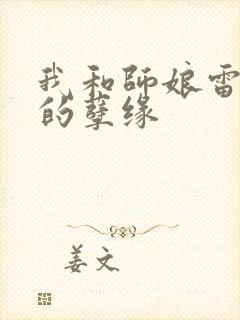 我和师娘雷
的孽缘
姜文